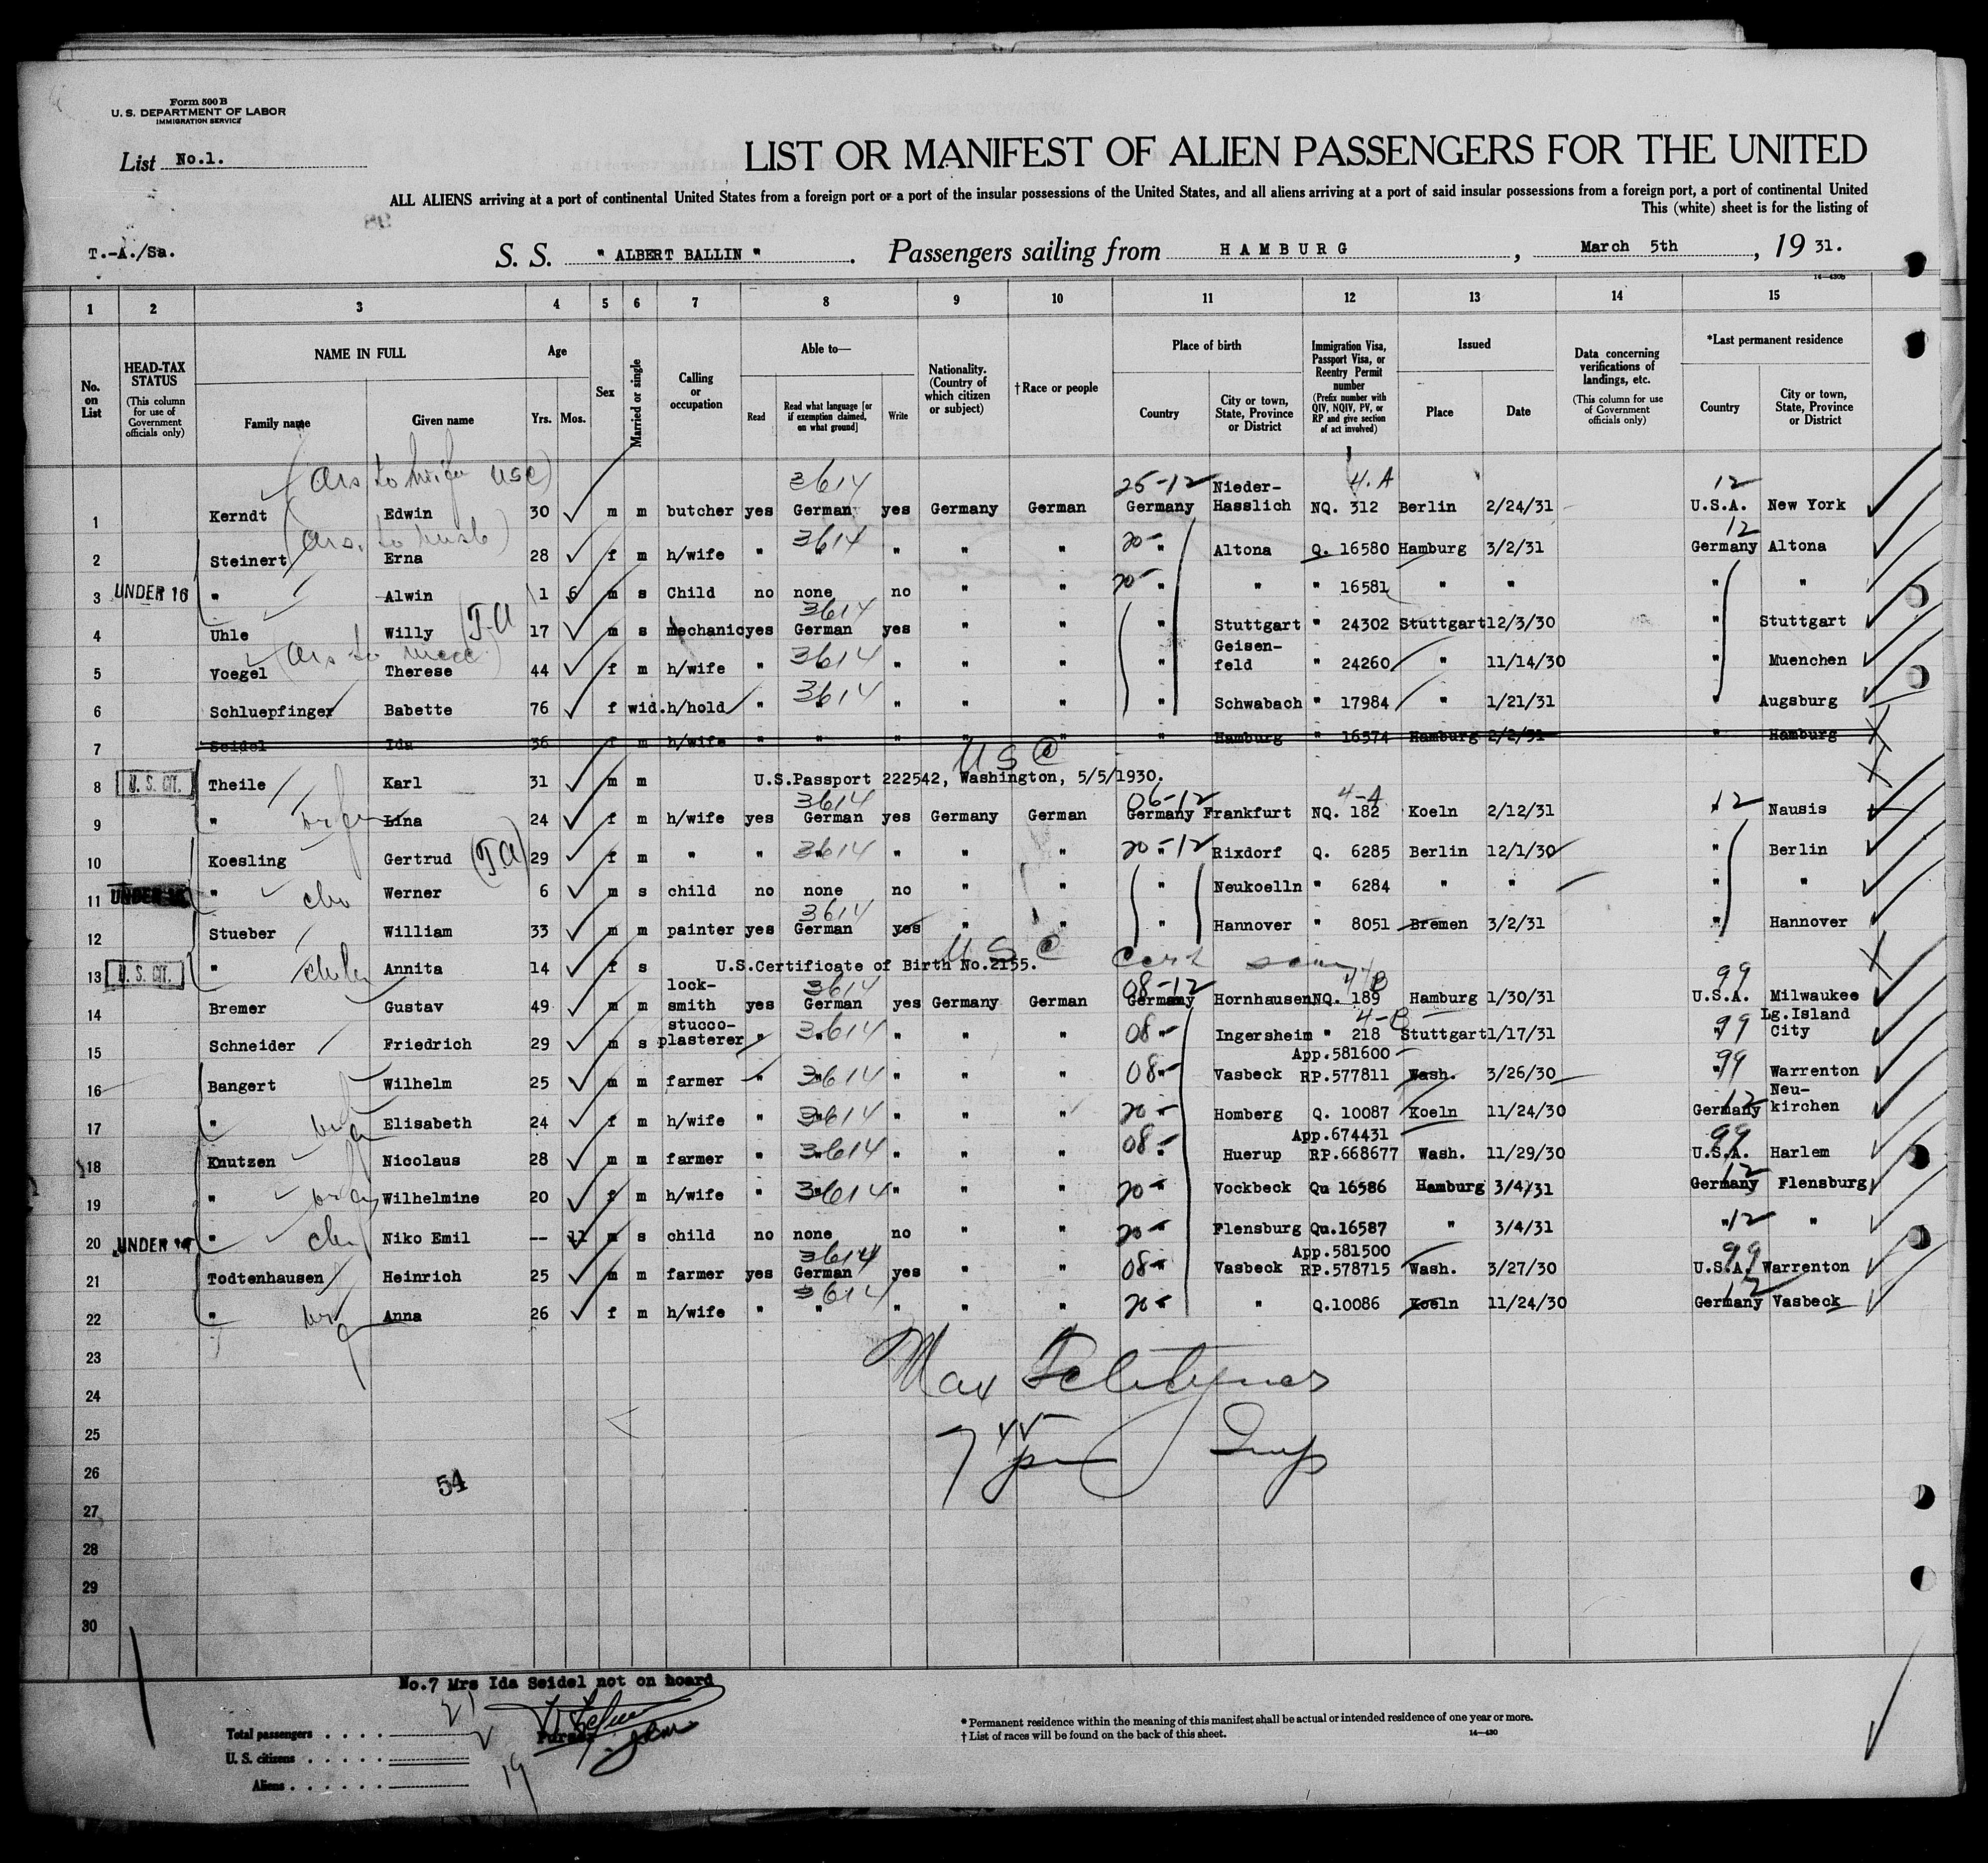 Form 500 B
U. S. DEPARTMENT OF LABOR
IMMIGRATION SERVICE
List No.1.
LIST OR MANIFEST OF ALIEN PASSENGERS FOR THE UNITED
ALL ALIENS arriving at a port of continental United States from a foreign port or a port of the insular possessions of the United States, and all aliens arriving at a port of said insular possessions from a foreign port, a port of continental United
This (white) sheet is for the listing of
T.-A./Sa.
S. S. " ALBERT BALLIN " . Passengers sailing from HAMBURG , March 5th , 19 31.
14—430b
1 2 3 4 5 6 7 8 9 10 11 12 13 14 15
No. on List
HEAD-TAX STATUS (This column for use of Government officials only)
NAME IN FULL Family name Given name
Age Yrs. Mos.
Sex
Married or single
Calling or occupation
Able to— Read Read what language [or if exemption claimed, on what ground] Write
Nationality. (Country of which citizen or subject)
† Race or people
Place of birth Country City or town, State, Province or District
Immigration Visa, Passport Visa, or Reentry Permit number (Prefix number with QIV, NQIV, PV, or RP and give section of act involved)
Issued Place Date
Data concerning verifications of landings, etc. (This column for use of Government officials only)
*Last permanent residence Country City or town, State, Province or District
(Ars to wife USC) 3614 25-12 4.A 12
1 Kerndt Edwin 30 m m butcher yes German yes Germany German Germany Nieder-Hasslich NQ. 312 Berlin 2/24/31 U.S.A. New York
(Ars. to husb) 3614 20- 12
2 Steinert Erna 28 f m h/wife " " " " " " Altona Q. 16580 Hamburg 3/2/31 Germany Altona
3 UNDER 16 " Alwin 1 6 m s Child no none no " " 20- " " " 16581 " " " "
4 Uhle Willy (T.A 17 m s mechanic yes 3614 German yes " " " Stuttgart " 24302 Stuttgart 12/3/30 " Stuttgart
(Ars to niece) 3614
5 Voegel Therese 44 f m h/wife " " " " " Geisen-feld " 24260 " 11/14/30 " Muenchen
6 Schluepfinger Babette 76 f wid. h/hold " 3614 " " " " " Schwabach " 17984 " 1/21/31 Augsburg
7 Seidel Ida 36 f m h/wife " " " " " " Hamburg " 16574 Hamburg 2/2/31 " Hamburg
USC
8 U. S. CIT. Theile Karl 31 m m U.S.Passport 222542, Washington, 5/5/1930.
3614 06-12 4-A 12
9 " wife Lina 24 f m h/wife yes German yes Germany German Germany Frankfurt NQ. 182 Koeln 2/12/31 " Nausis
10 Koesling Gertrud (T.A) 29 f m " " 3614 " " " 20-12 " Rixdorf Q. 6285 Berlin 12/1/30 " Berlin
11 UNDER 16 " Werner 6 m s child no none no " " " Neukoelln " 6284 " " " "
12 Stueber William 33 m m painter yes 3614 German yes " " " Hannover " 8051 Bremen 3/2/31 " Hannover
USC
13 U. S. CIT. " Annita 14 f s U.S.Certificate of Birth No.2155.
3614 08-12 4-B 99
14 Bremer Gustav 49 m m lock-smith yes German yes Germany German Germany Hornhausen NQ. 189 Hamburg 1/30/31 U.S.A. Milwaukee
15 Schneider Friedrich 29 m s stucco-plasterer " 3614 " " " 08- " Ingersheim " 4-B 218 Stuttgart 1/17/31 " 99 Lg.Island City
App.581600
16 Bangert Wilhelm 25 m m farmer " 3614 " " " 08- " Vasbeck RP.577811 Wash. 3/26/30 " 99 Warrenton
17 " Elisabeth 24 f m h/wife " 3614 " " " 20- " Homberg Q. 10087 Koeln 11/24/30 Germany 12 Neu-kirchen
App.674431
18 Knutzen Nicolaus 28 m m farmer " 3614 " " " 08- " Huerup RP.668677 Wash. 11/29/30 U.S.A. 99 Harlem
19 " Wilhelmine 20 f m h/wife " 3614 " " " 20- " Vockbeck Qu 16586 Hamburg 3/4/31 Germany 12 Flensburg
20 UNDER 16 " Niko Emil -- 11 m s child no none no " " 20- " Flensburg Qu.16587 " 3/4/31 " 12 "
App.581500
21 Todtenhausen Heinrich 25 m m farmer yes 3614 German yes " " 08- " Vasbeck RP.578715 Wash. 3/27/30 U.S.A. 99 Warrenton
22 " Anna 26 f m h/wife " 3614 " " " " 20- " " Q.10086 Koeln 11/24/30 Germany 12 Vasbeck
23
Max
24
25
7 45 pm Insp
26
54
27
28
29
30
No.7 Mrs Ida Seidel not on board
Purser
Total passengers . . . . 21
U. S. citizens . . . . . 2
Aliens . . . . . . 19
* Permanent residence within the meaning of this manifest shall be actual or intended residence of one year or more.
† List of races will be found on the back of this sheet.
14—430